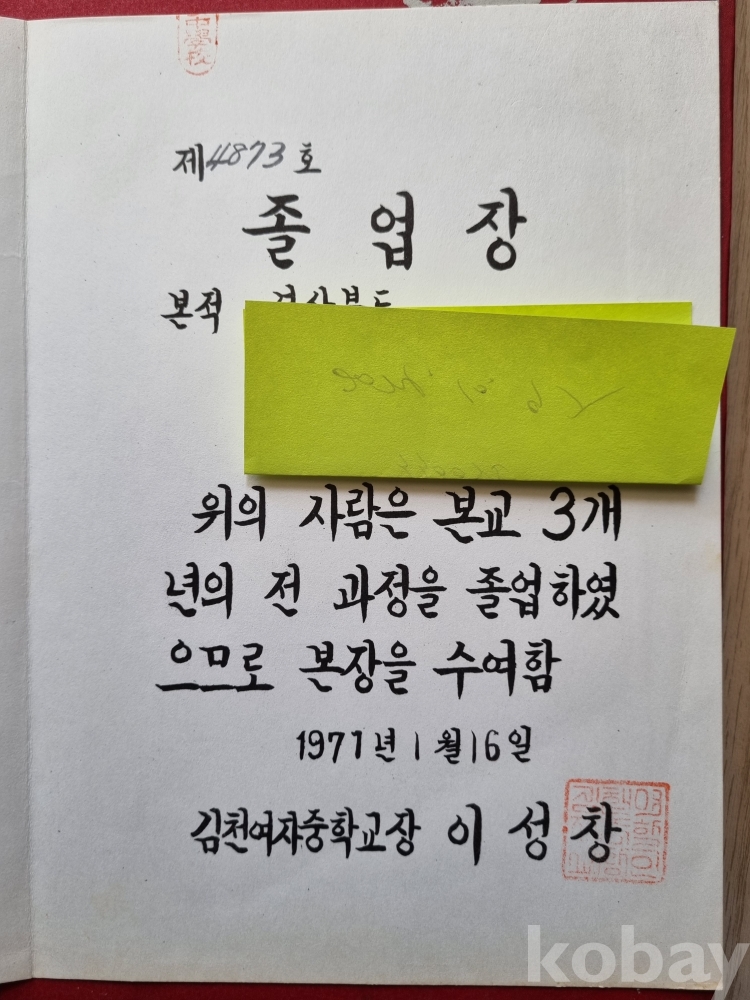 中學校
제4873호
졸업장
본적 경상북도
위의 사람은 본교 3개
년의 전 과정을 졸업하였
으므로 본장을 수여함
1977년 1월 16일
김천여자중학교장 이성창
kobay